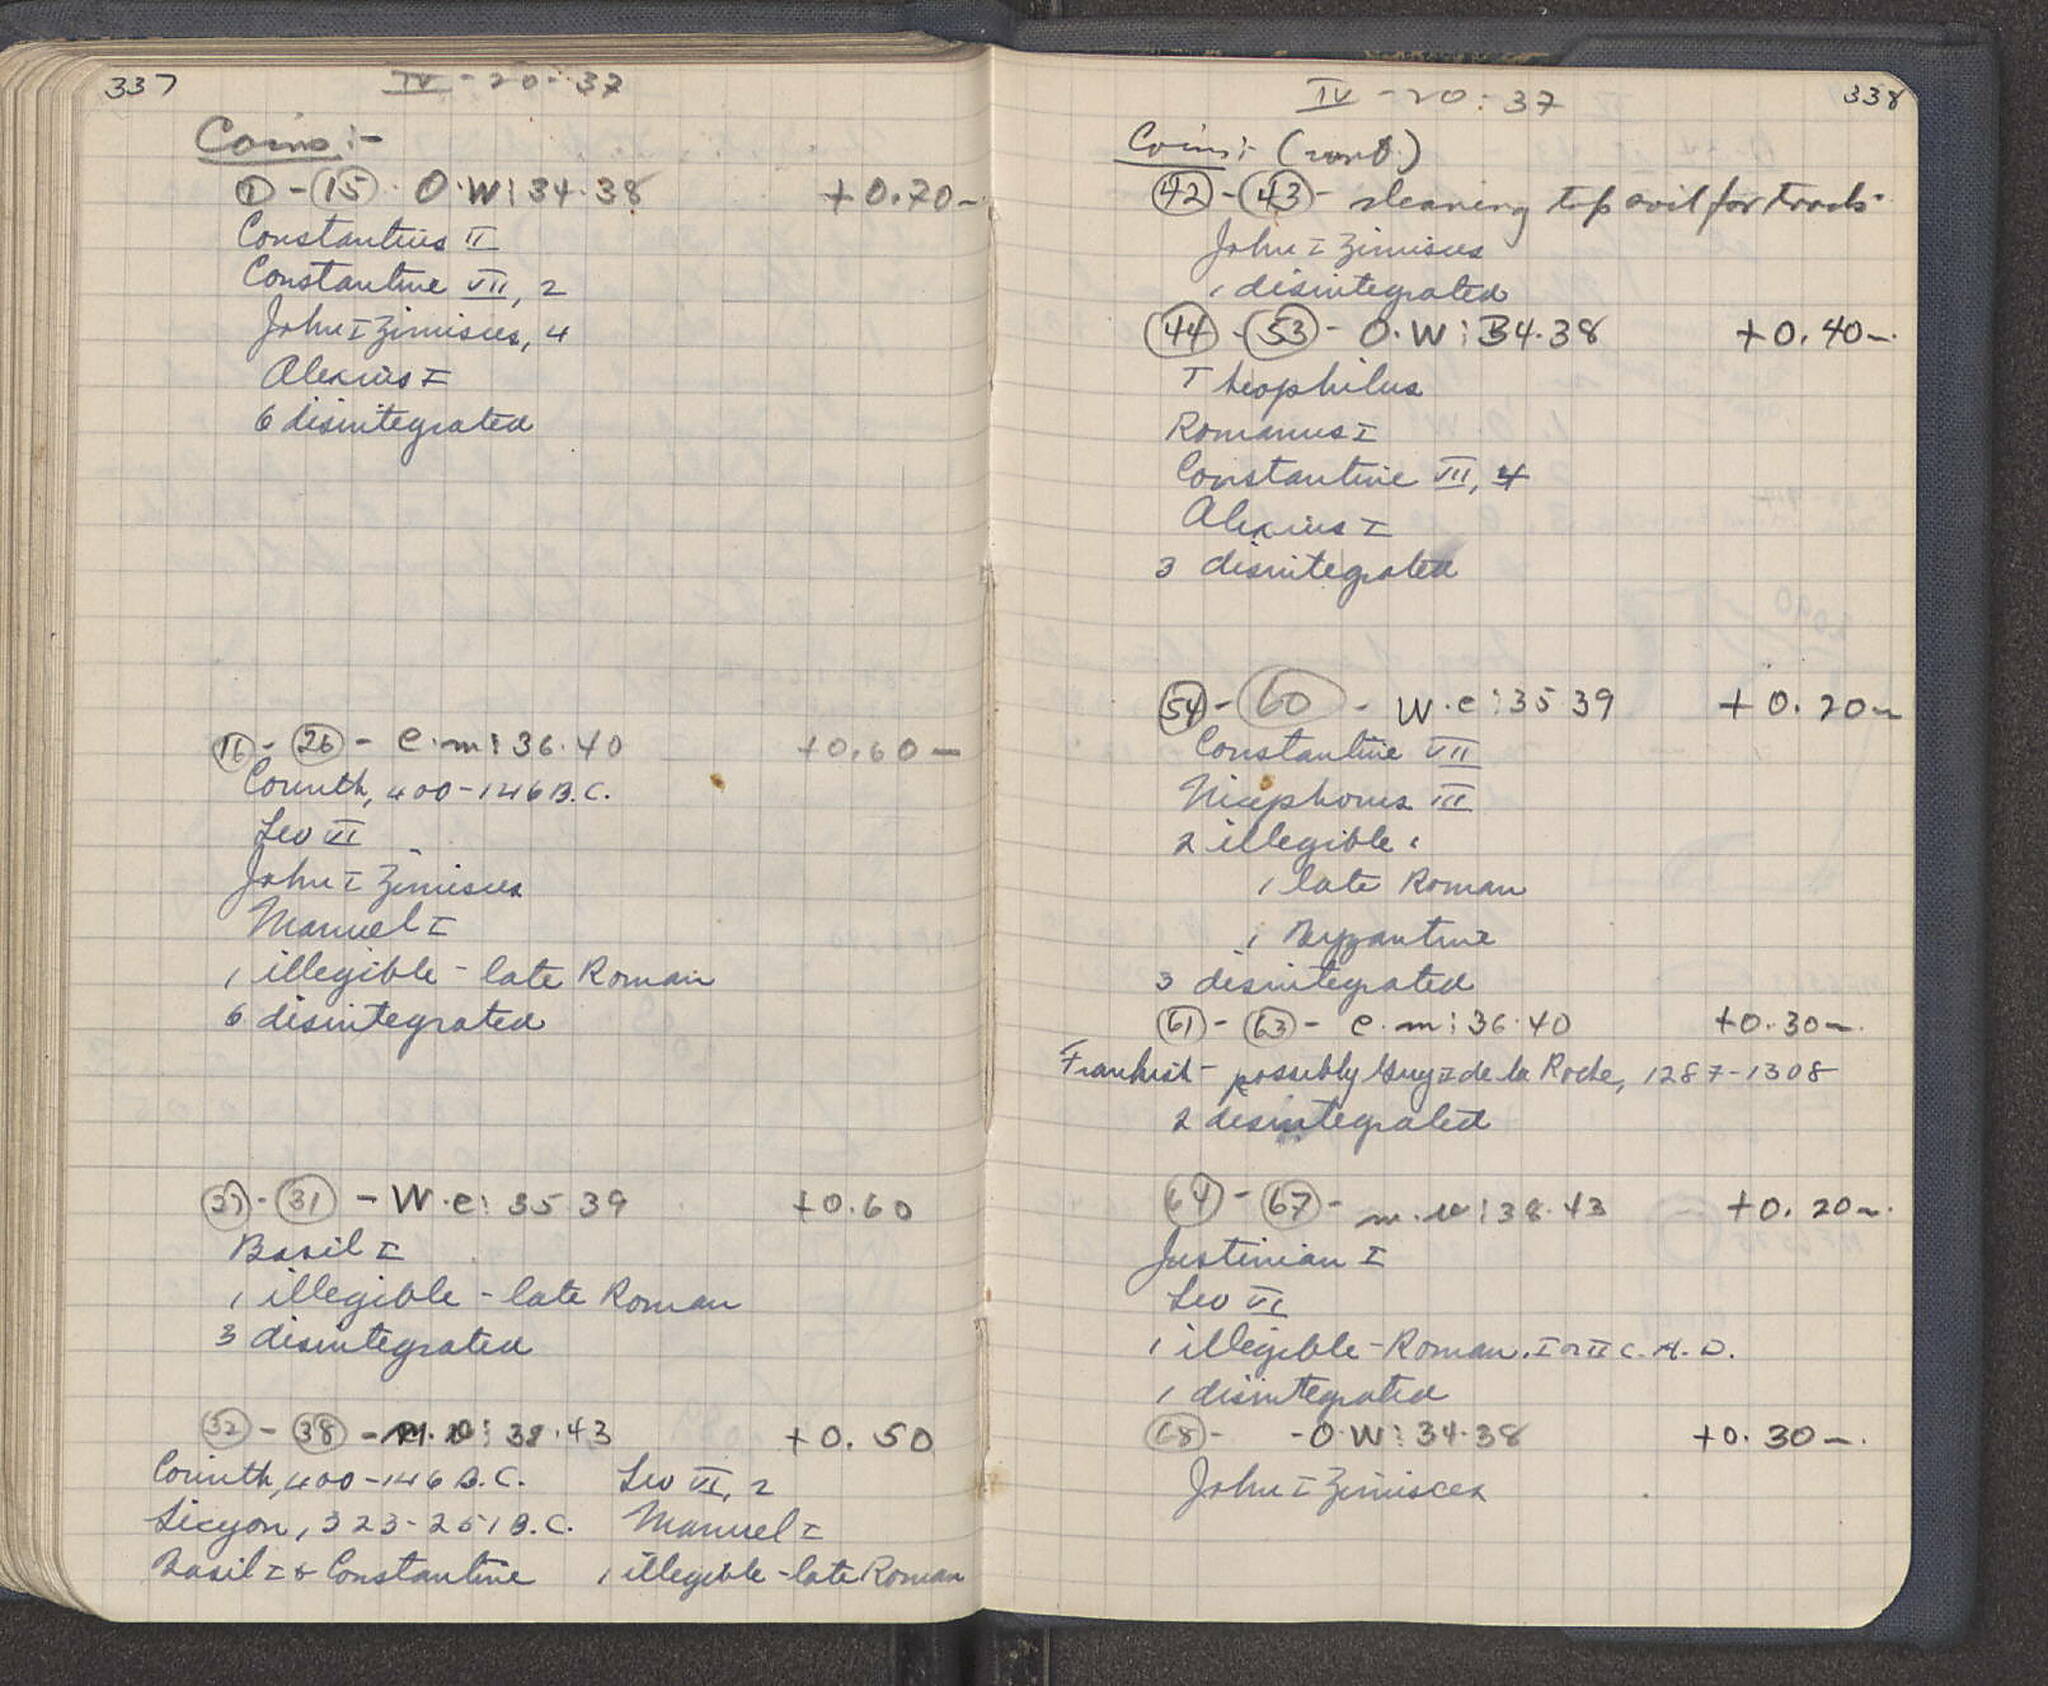 337
IV-20-37
Coins:-
1 - 15 - O.W: 34.38 +0.70-
Constantius II
Constantine VII, 2
John I Zimisces, 4
Alexius I
6 disintegrated
16 - 26 - C.M: 36.40 +0.60-
Corinth, 400-146 B.C.
Leo VI
John I Zimisces
Manuel I
1 illegible - late Roman
6 disintegrated
27 - 31 - W.C: 35 39 +0.60
Basil I
1 illegible - late Roman
3 disintegrated
32 - 38 - M.N: 38.43 +0.50
Corinth, 400-146 B.C. Leo VI, 2
Sicyon, 323-251 B.C. Manuel I
Basil I & Constantine 1 illegible - late Roman
IV-20-37
338
Coins:- (cont.)
42 - 43 - cleaning top soil for tracks.
John I Zimisces
1 disintegrated
44 - 53 - O.W: 34.38 +0.40-
Theophilus
Romanus I
Constantine VII, 4
Alexius I
3 disintegrated
54 - 60 - W.C: 35 39 +0.20-
Constantine VII
Nicephorus III
2 illegible:
1 late Roman
1 Byzantine
3 disintegrated
61 - 63 - C.M: 36.40 +0.30-
Frankish - possibly Guy II de la Roche, 1287-1308
2 disintegrated
64 - 67 - M.N: 38.43 +0.20-
Justinian I
Leo VI
1 illegible - Roman. I or II C. A.D.
1 disintegrated
68 - - O.W: 34.38 +0.30-
John I Zimisces